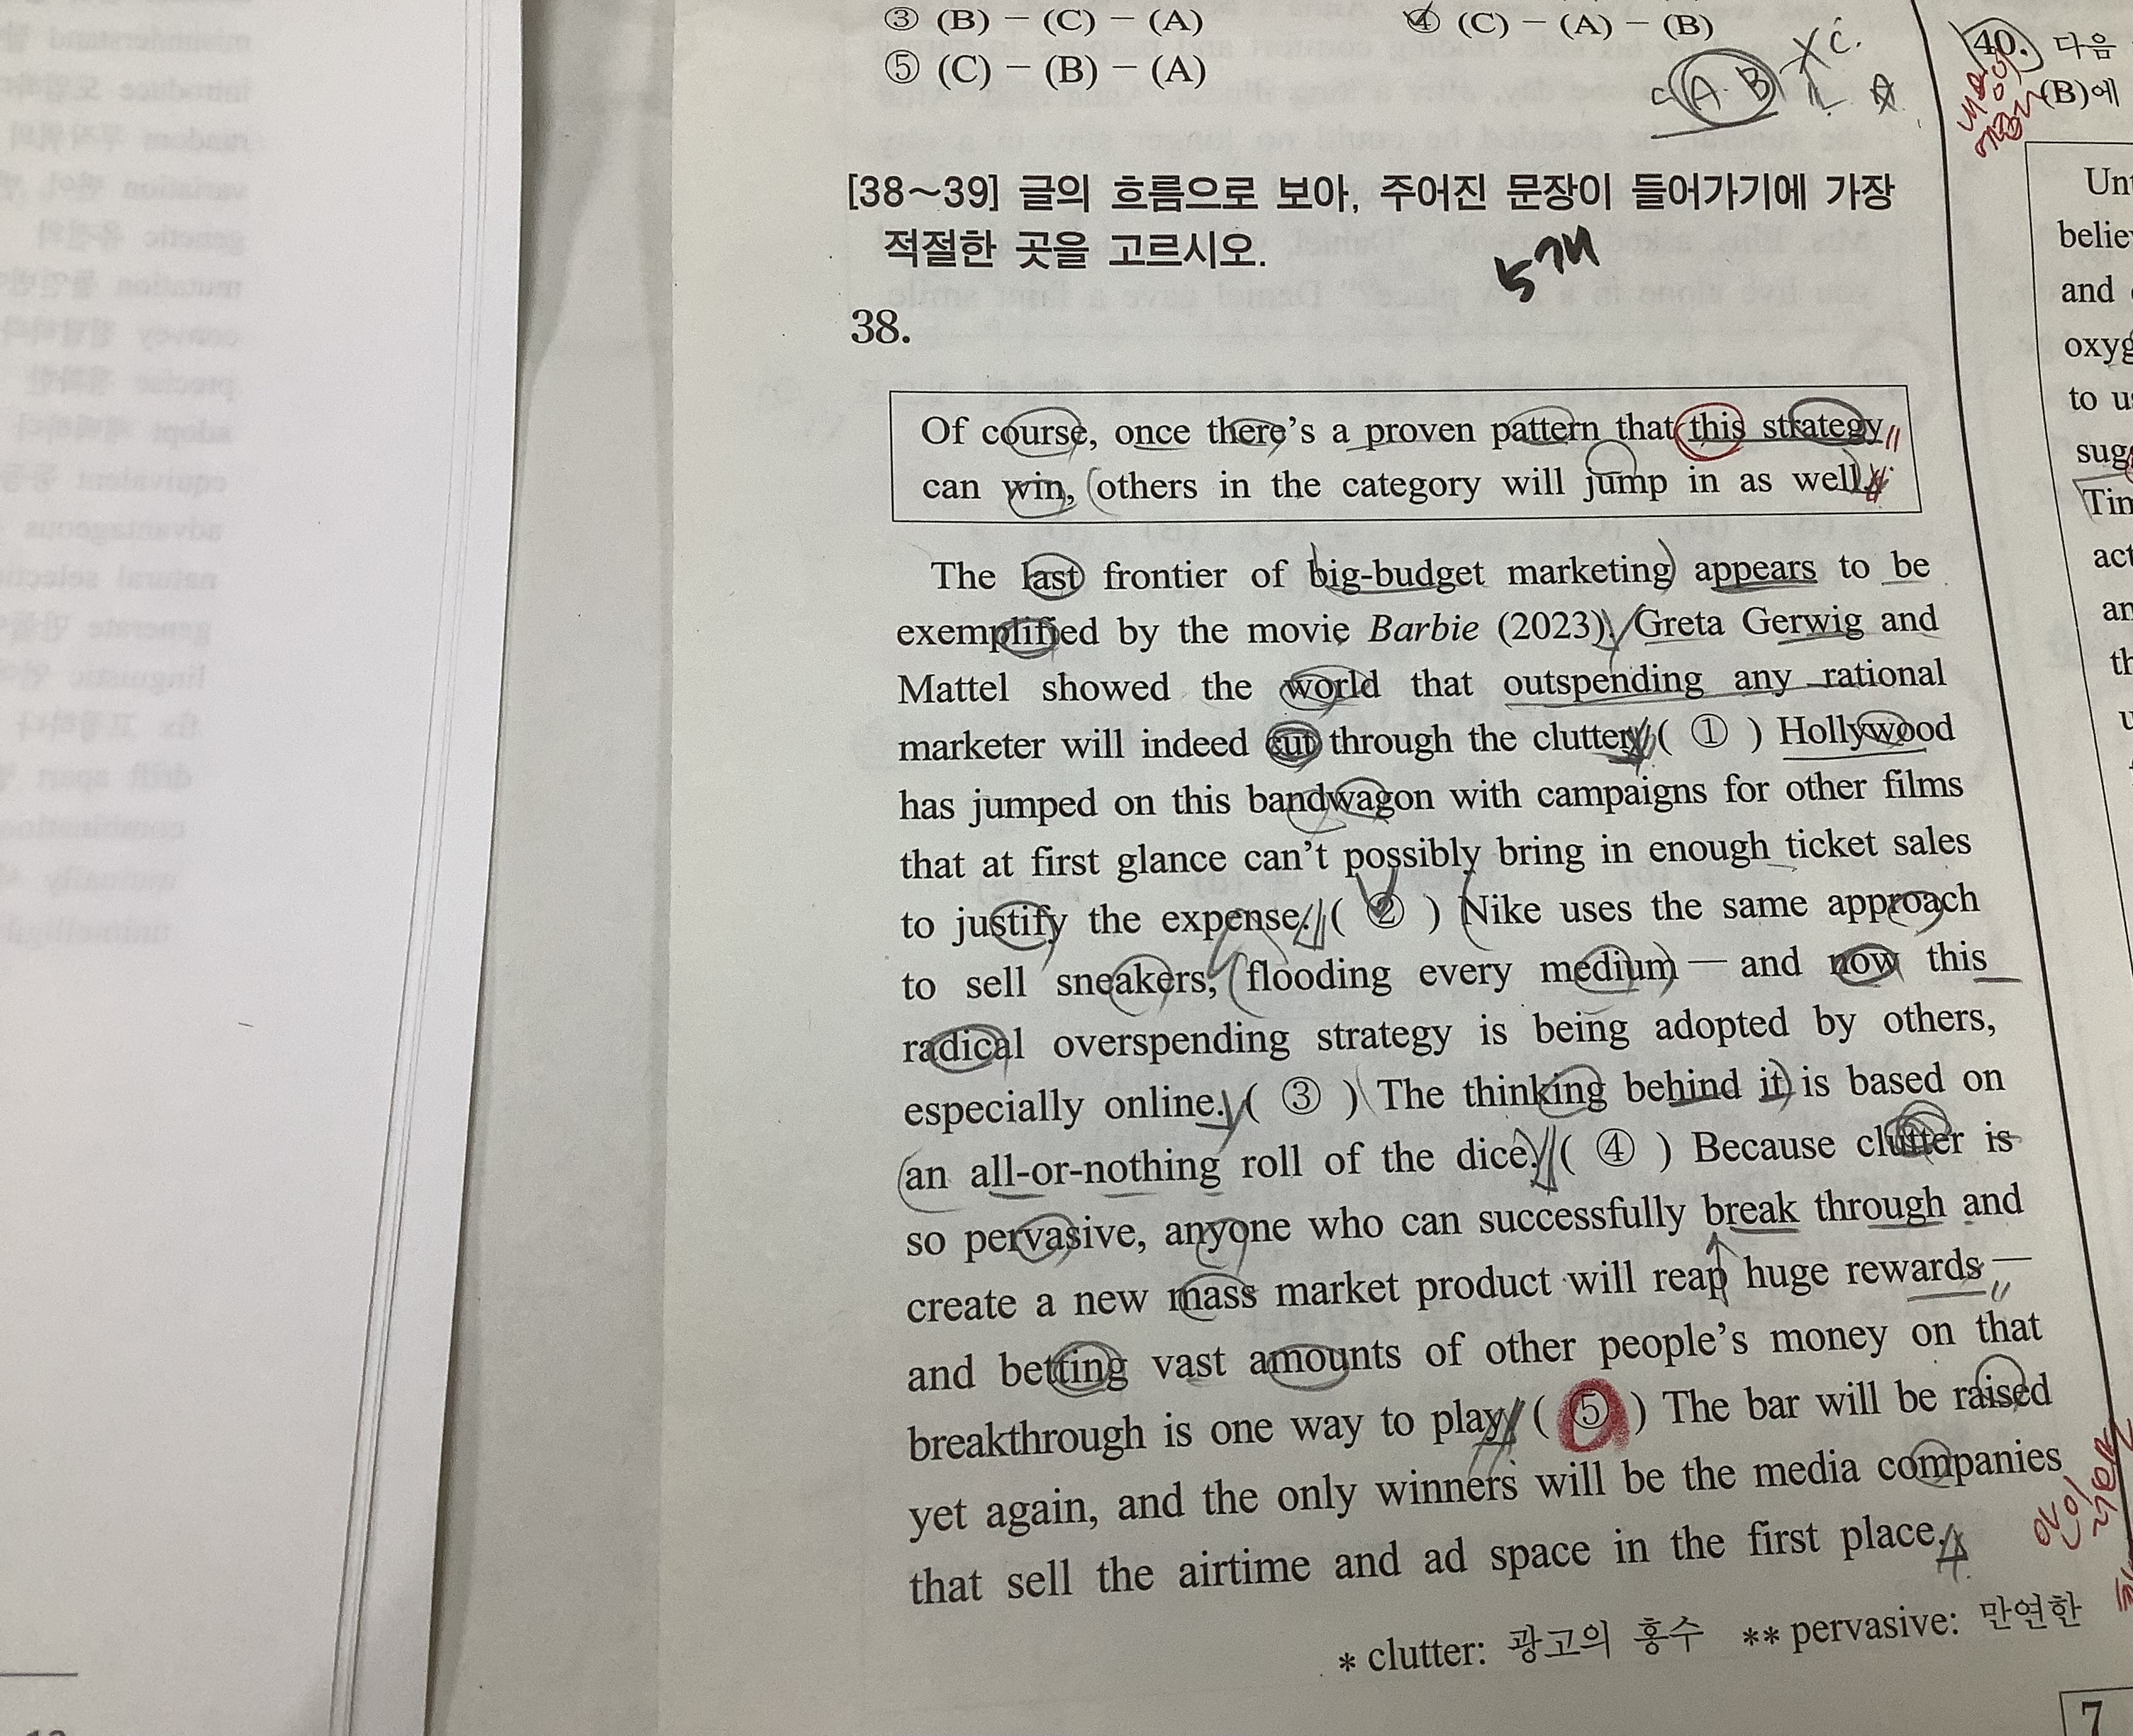 ③ (B) - (C) - (A)
④ (C) - (A) - (B)
⑤ (C) - (B) - (A)
C. A. B X C. L A
[38～39] 글의 흐름으로 보아, 주어진 문장이 들어가기에 가장
적절한 곳을 고르시오.
38.
Of course, once there's a proven pattern that this strategy
can win, others in the category will jump in as well.
The last frontier of big-budget marketing appears to be
exemplified by the movie Barbie (2023). Greta Gerwig and
Mattel showed the world that outspending any rational
marketer will indeed cut through the clutter. ( ① ) Hollywood
has jumped on this bandwagon with campaigns for other films
that at first glance can't possibly bring in enough ticket sales
to justify the expense. ( ② ) Nike uses the same approach
to sell sneakers, flooding every medium — and now this
radical overspending strategy is being adopted by others,
especially online. ( ③ ) The thinking behind it is based on
an all-or-nothing roll of the dice. ( ④ ) Because clutter is
so pervasive, anyone who can successfully break through and
create a new mass market product will reap huge rewards —
and betting vast amounts of other people's money on that
breakthrough is one way to play. ( ⑤ ) The bar will be raised
yet again, and the only winners will be the media companies
that sell the airtime and ad space in the first place.
* clutter: 광고의 홍수 ** pervasive: 만연한
7
40. 다음
(B)에
Unt
believ
and
oxyg
to u
sugg
Tim
act
an
th